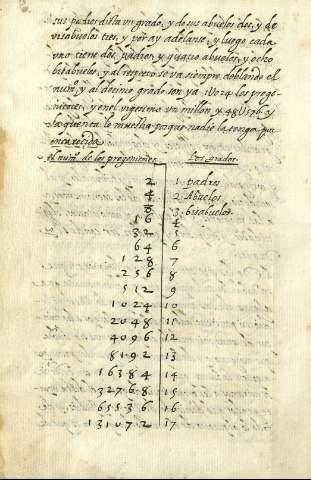 sus padres dista un grado, y de sus abuelos dos, y de
visabuelos tres, y por ay adelante, y luego cada
uno tiene dos padres, y quatro abuelos, y ocho
bisabuelos, y al respecto se va siempre doblando el
num.º y al decimo grado son ya 1U024 los proge-
nitores, y en el vigesimo un millon, y 48U576 y
la quenta lo muestra porque nadie la tenga por
encarecida
el num.º de los progenitores Los grados
2 1 padres
4 2 Abuelos
8 3 bisabuelos
16 4
32 5
64 6
128 7
256 8
512 9
1024 10
2048 11
4096 12
8192 13
16384 14
32768 15
65536 16
131072 17